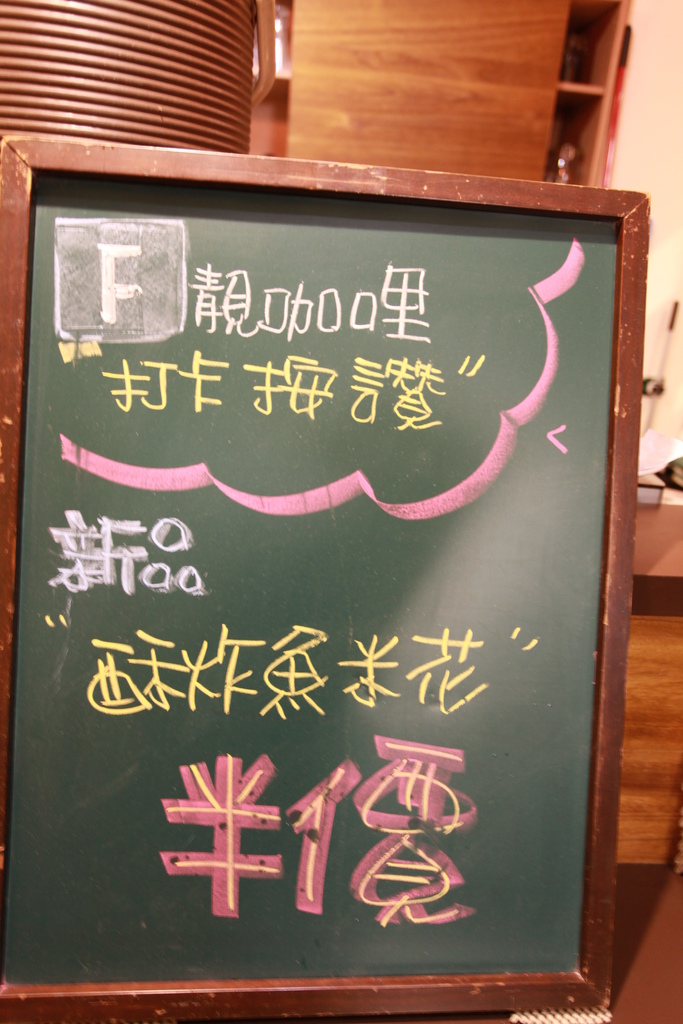 F 靚咖哩
"打卡按讚"
新品
"酥炸魚米花"
半價